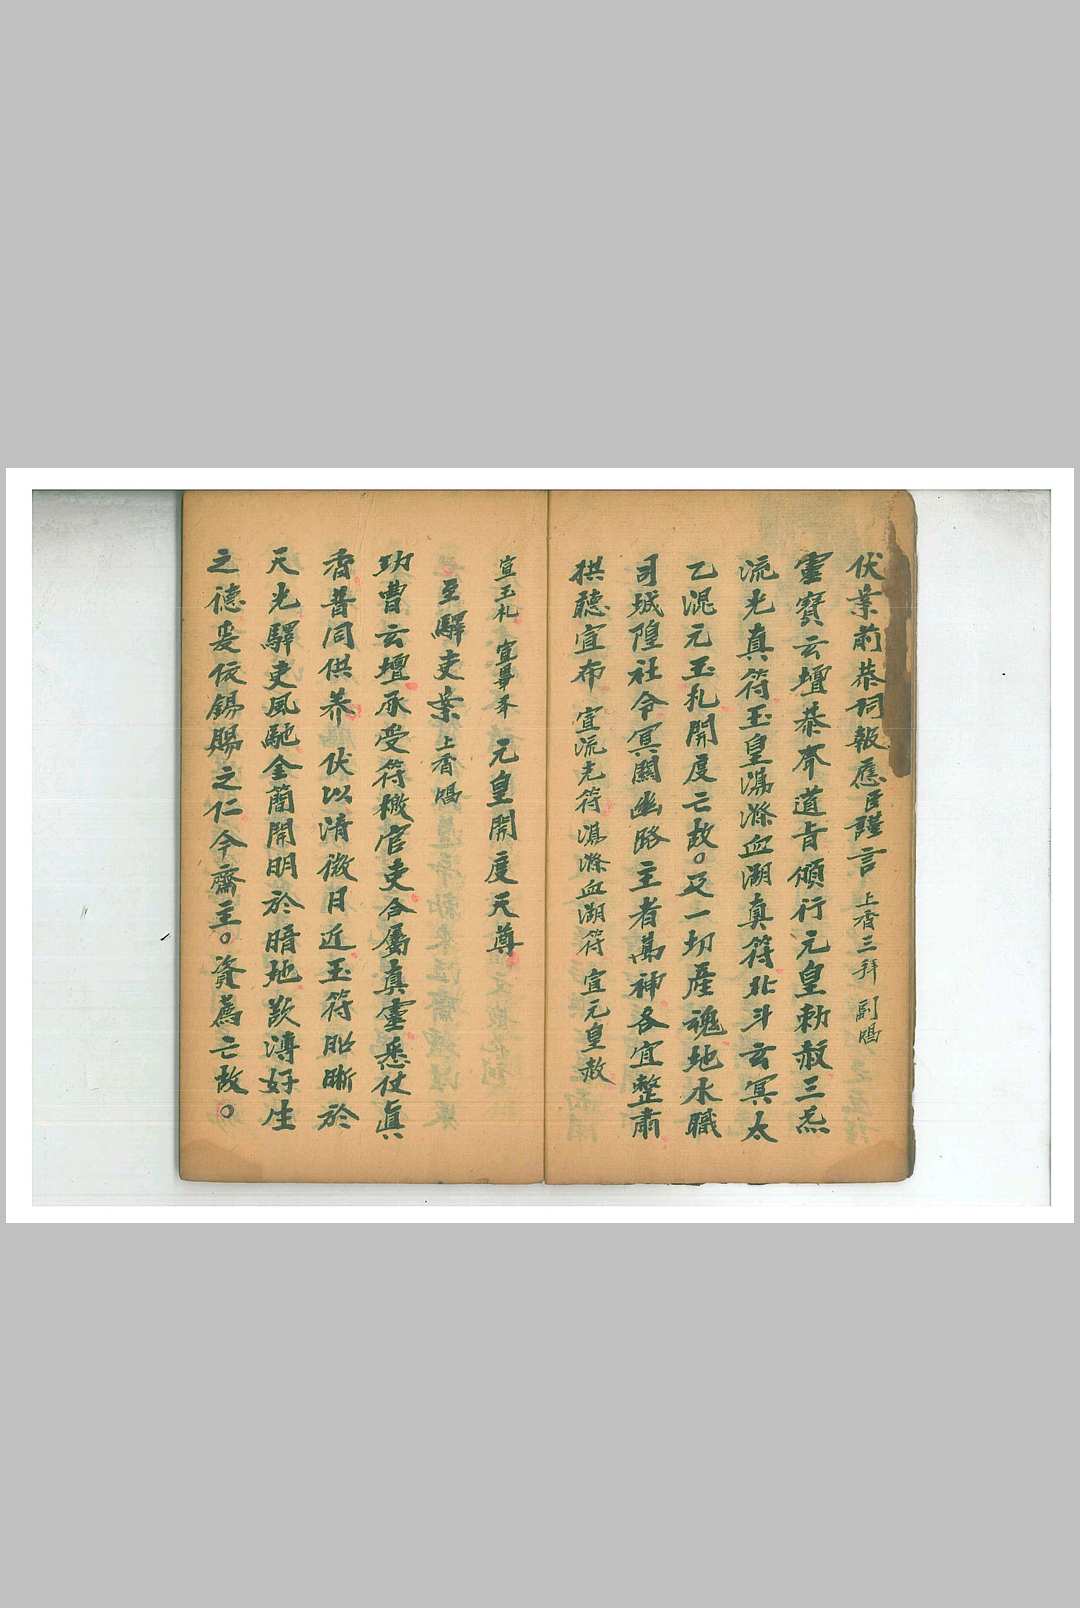 伏業前恭伺報應臣謹言 上香三拜 副唱
靈寶云壇恭奉道旨頒行元皇勅赦三炁
流光真符玉皇蕩滌血湖真符北斗玄冥太
乙混元玉札開度亡故。及一切產魂地水職
司城隍社令冥關幽路主者萬神各宜整肅
拱聽宣布 宣流光符 滌血湖符 宣元皇赦
宣玉札 元皇開度天尊
至驛吏業 上香唱
功曹云壇承受符檄官吏合屬真靈悉仗真
香普同供养 伏以清微日近玉符昭晰於
天光驛吏風馳金簡開明於暗地歎溥好生
之德爰依錫賜之仁今齋主。資薦亡故。